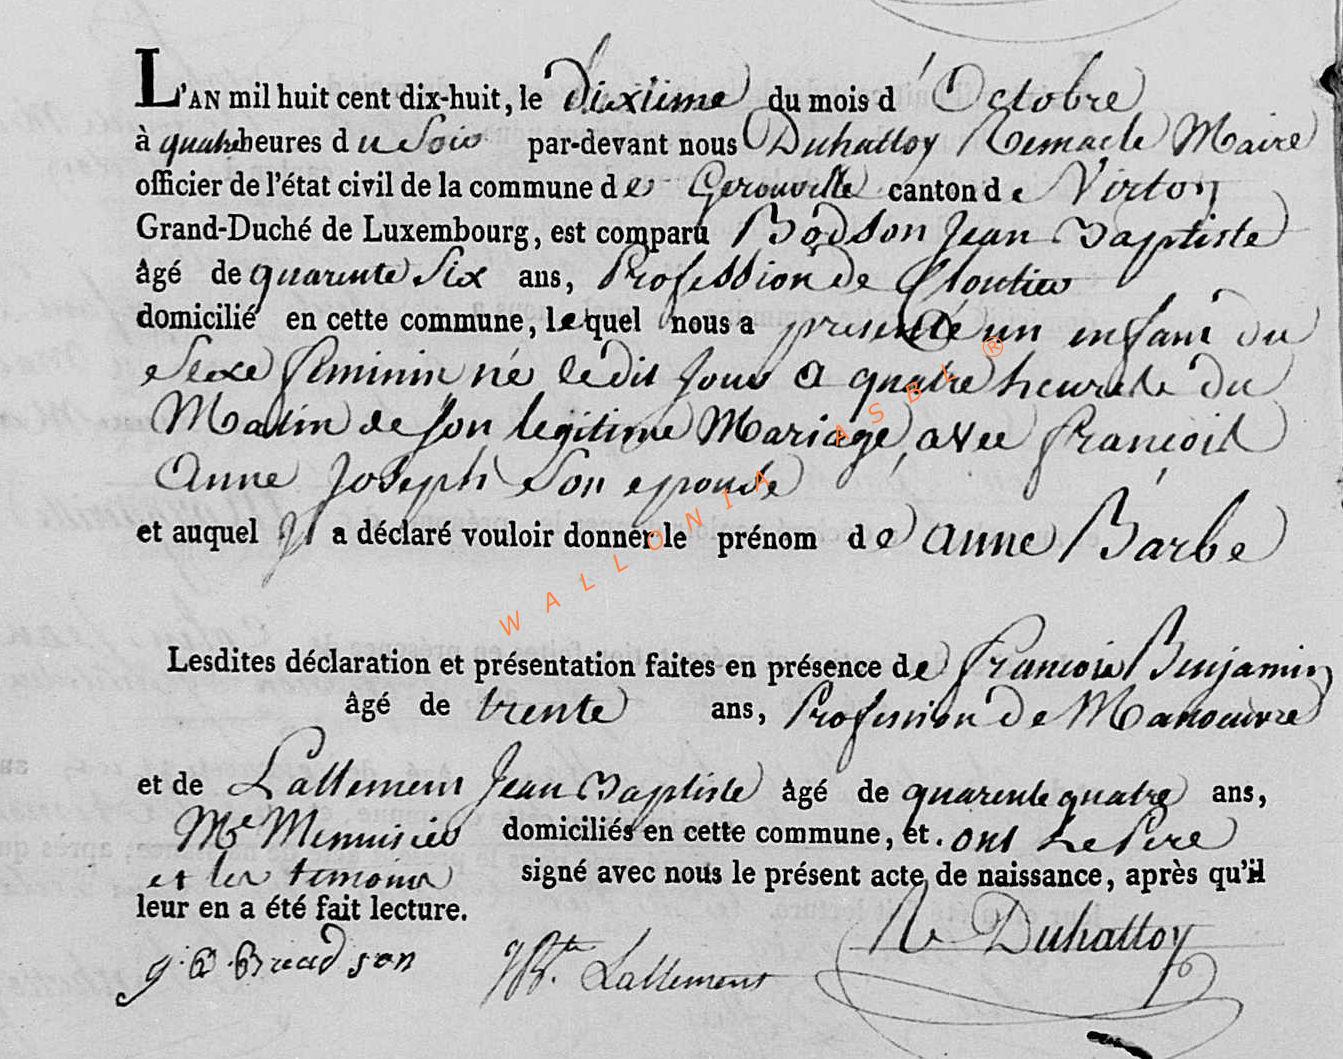 L'AN mil huit cent dix-huit, le dixiéme du mois d'Octobre
à quatre heures du Soir par-devant nous Duhattoy Remacle Maire
officier de l'état civil de la commune de Gerouville canton de Virton
Grand-Duché de Luxembourg, est comparu Bodson Jean Baptiste
âgé de quarente Six ans, Profession de Cloutier
domicilié en cette commune, lequel nous a presenté un enfant du
Sexe feminin né ledit Jour a quatre heures du
Matin de son legitime Mariage, avec françois
Anne Joseph Son epouse
et auquel Jl a déclaré vouloir donner le prénom de anne Barbe
Lesdites déclaration et présentation faites en présence de francois Benjamin
âgé de trente ans, Profession de Manouvre
et de Lallement Jean Baptiste âgé de quarente quatre ans,
Me Menuisier domiciliés en cette commune, et. ont Le Pere
et les temoins signé avec nous le présent acte de naissance, après qu'il
leur en a été fait lecture.
J. B. Bodson JBte Lallement R Duhattoy
WALLONIA ASBL ®